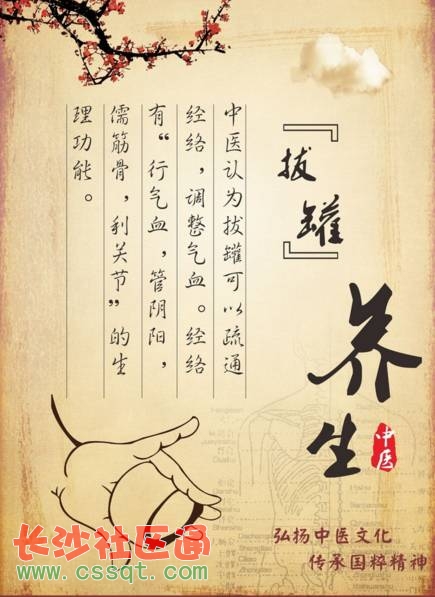 『拔罐』
养生
中医
中医认为拔罐可以疏通
经络，调整气血。经络
有“行气血，管阴阳，
儒筋骨，利关节”的生
理功能。
弘扬中医文化
传承国粹精神
长沙社区通
www.cssqt.com